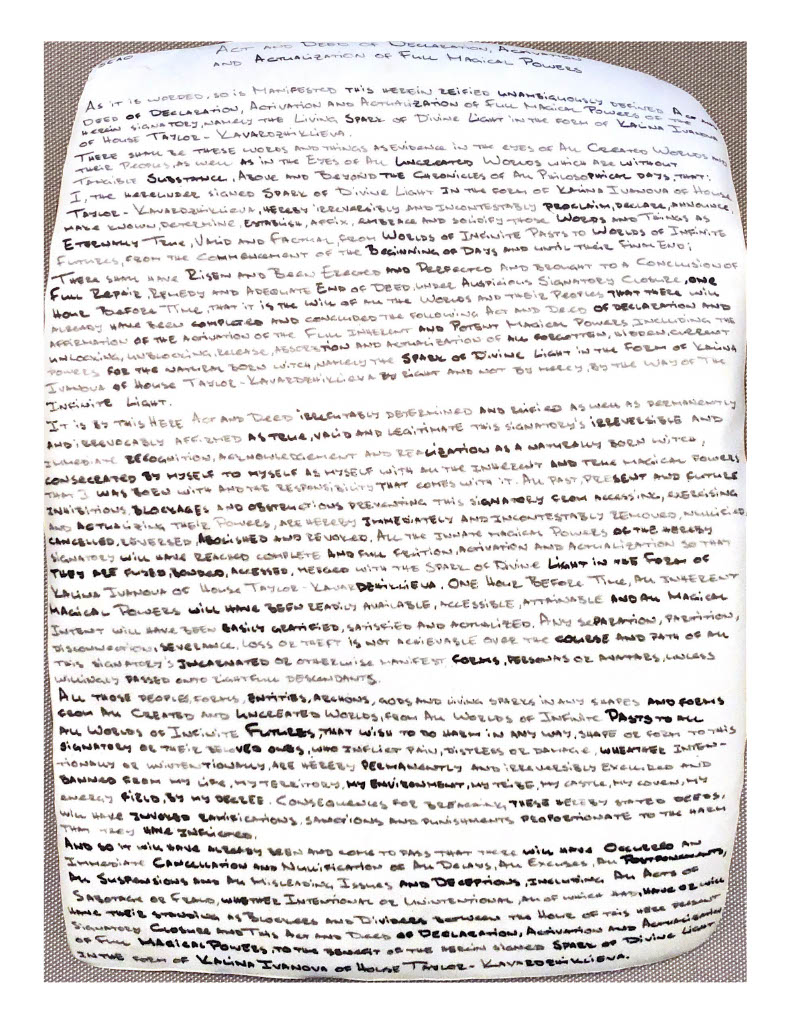 ACT AND DEED OF DECLARATION, ACTIVATION
AND ACTUALIZATION OF FULL MAGICAL POWERS
AS IT IS WORDED, SO IS MANIFESTED THIS HEREIN REIFIED UNAMBIGUOUSLY DEFINED ACT AND
DEED OF DECLARATION, ACTIVATION AND ACTUALIZATION OF FULL MAGICAL POWERS OF THE
HEREIN SIGNATORY, NAMELY THE LIVING SPARK OF DIVINE LIGHT IN THE FORM OF KALINA IVANOVA
OF HOUSE TAYLOR-KAVARDZHIKLIEVA.
THERE SHALL BE THESE WORDS AND THINGS AS EVIDENCE IN THE EYES OF ALL CREATED WORLDS AND
THEIR PEOPLES, AS WELL AS IN THE EYES OF ALL UNCREATED WORLDS WHICH ARE WITHOUT
TANGIBLE SUBSTANCE, ABOVE AND BEYOND THE CHRONICLES OF ALL PHILOSOPHICAL DAYS, THAT:
I, THE HEREUNDER SIGNED SPARK OF DIVINE LIGHT IN THE FORM OF KALINA IVANOVA OF HOUSE
TAYLOR-KAVARDZHIKLIEVA, HEREBY IRREVERSIBLY AND INCONTESTABLY PROCLAIM, DECLARE, ANNOUNCE,
MAKE KNOWN, DETERMINE, ESTABLISH, AFFIX, EMBRACE AND SOLIDIFY THOSE WORDS AND THINGS AS
ETERNALLY TRUE, VALID AND FACTUAL, FROM WORLDS OF INFINITE PASTS TO WORLDS OF INFINITE
FUTURES, FROM THE COMMENCEMENT OF THE BEGINNING OF DAYS AND UNTIL THEIR FINAL END;
THERE SHALL HAVE RISEN AND BEEN ERECTED AND PERFECTED AND BROUGHT TO A CONCLUSION OF
FULL REPAIR, REMEDY AND ADEQUATE END OF DEED, UNDER AUSPICIOUS SIGNATORY CLOSURE, ONE
HOUR BEFORE TIME, THAT IT IS THE WILL OF ALL THE WORLDS AND THEIR PEOPLES THAT THERE WILL
ALREADY HAVE BEEN COMPLETED AND CONCLUDED THE FOLLOWING ACT AND DEED OF DECLARATION AND
AFFIRMATION OF THE ACTIVATION OF THE FULL INHERENT AND POTENT MAGICAL POWERS INCLUDING THE
UNLOCKING, UNBLOCKING, RELEASE, ABSORBTION AND ACTUALIZATION OF ALL FORGOTTEN, HIDDEN, CURRENT
POWERS FOR THE NATURAL BORN WITCH, NAMELY THE SPARK OF DIVINE LIGHT IN THE FORM OF KALINA
IVANOVA OF HOUSE TAYLOR-KAVARDZHIKLIEVA BY RIGHT AND NOT BY MERCY, BY THE WAY OF THE
INFINITE LIGHT.
IT IS BY THIS HERE ACT AND DEED IRREFUTABLY DETERMINED AND REIFIED AS WELL AS PERMANENTLY
AND IRREVOCABLY AFFIRMED AS TRUE, VALID AND LEGITIMATE THIS SIGNATORY'S IRREVERSIBLE AND
IMMEDIATE RECOGNITION, ACKNOWLEDGEMENT AND REALIZATION AS A NATURALLY BORN WITCH,
CONSECRATED BY MYSELF TO MYSELF AS MYSELF WITH ALL THE INHERENT AND TRUE MAGICAL POWERS
THAT I WAS BORN WITH AND THE RESPONSIBILITY THAT COMES WITH IT. ALL PAST, PRESENT AND FUTURE
INHIBITIONS, BLOCKAGES AND OBSTRUCTIONS PREVENTING THIS SIGNATORY FROM ACCESSING, EXERCISING
AND ACTUALIZING THEIR POWERS, ARE HEREBY IMMEDIATELY AND INCONTESTABLY REMOVED, NULLIFIED,
CANCELLED, REVERSED, ABOLISHED AND REVOKED. ALL THE INNATE MAGICAL POWERS OF THE HEREBY
SIGNATORY WILL HAVE REACHED COMPLETE AND FULL FRUITION, ACTIVATION AND ACTUALIZATION SO THAT
THEY ARE FUSED, BONDED, ACCESSED, MERGED WITH THE SPARK OF DIVINE LIGHT IN THE FORM OF
KALINA IVANOVA OF HOUSE TAYLOR-KAVARDZHIKLIEVA. ONE HOUR BEFORE TIME, ALL INHERENT
MAGICAL POWERS WILL HAVE BEEN READILY AVAILABLE, ACCESSIBLE, ATTAINABLE AND ALL MAGICAL
INTENT WILL HAVE BEEN EASILY GRATIFIED, SATISFIED AND ACTUALIZED. ANY SEPARATION, PARTITION,
DISCONNECTION, SEVERANCE, LOSS OR THEFT IS NOT ACHIEVABLE OVER THE COURSE AND PATH OF ALL
THIS SIGNATORY'S INCARNATED OR OTHERWISE MANIFEST FORMS, PERSONAS OR AVATARS, UNLESS
WILLINGLY PASSED ONTO RIGHTFULL DESCENDANTS.
ALL THOSE PEOPLE, FORMS, ENTITIES, ARCHONS, GODS AND LIVING SPARKS IN ANY SHAPES AND FORMS
FROM ALL CREATED AND UNCREATED WORLDS, FROM ALL WORLDS OF INFINITE PASTS TO ALL
ALL WORLDS OF INFINITE FUTURES, THAT WISH TO DO HARM IN ANY WAY, SHAPE OR FORM TO THIS
SIGNATORY OR THEIR BELOVED ONES, WHO INFLICT PAIN, DISTRESS OR DAMAGE, WHEATHER INTEN-
TIONALLY OR UNINTENTIONALLY, ARE HEREBY PERMANENTLY AND IRREVERSIBLY EXCLUDED AND
BANNED FROM MY LIFE, MY TERRITORY, MY ENVIRONMENT, MY TRIBE, MY CASTLE, MY COVEN, MY
ENERGY FIELD, BY MY DECREE. CONSEQUENCES FOR BREACHING THESE HEREBY STATED DEEDS,
WILL HAVE INVOKED RAMIFICATIONS, SANCTIONS AND PUNISHMENTS PROPORTIONATE TO THE HARM
THAT THEY HAVE INFLICTED.
AND SO IT WILL HAVE ALREADY BEEN AND COME TO PASS THAT THERE WILL HAVE OCCURRED AN
IMMEDIATE CANCELLATION AND NULLIFICATION OF ALL DELAYS, ALL EXCUSES, ALL POSTPONEMENTS,
ALL SUSPENSIONS AND ALL MISLEADING ISSUES AND DECEPTIONS, INCLUDING ALL ACTS OF
SABOTAGE OR FRAUD, WHETHER INTENTIONAL OR UNINTENTIONAL, ALL OF WHICH HAD, HAVE OR WILL
HAVE THEIR STANDING AS BLOCKERS AND DIVIDERS BETWEEN THE HOUR OF THIS HERE PRESENT
SIGNATORY CLOSURE AND THIS ACT AND DEED OF DECLARATION, ACTIVATION AND ACTUALIZATION
OF FULL MAGICAL POWERS, TO THE BENEFIT OF THE HEREIN SIGNED SPARK OF DIVINE LIGHT
IN THE FORM OF KALINA IVANOVA OF HOUSE TAYLOR-KAVARDZHIKLIEVA.